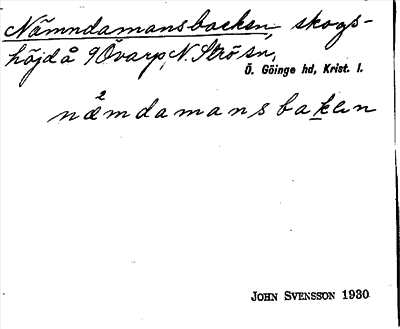 Nämndamansbacken, skogs-
höjd å 9 Övarp, N. Strö sn,
Ö. Göinge hd, Krist. l.
næ̊mdamansbaken
JOHN SVENSSON 1930